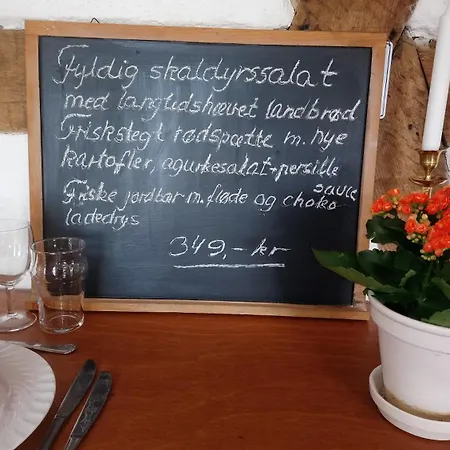 Fyldig skaldyrssalat
med langtidshævet landbrød
Friskstegt rødspætte m. nye
kartofler, agurkesalat + persille
sauce
Friske jordbær m. fløde og choko
ladedrys
349,- kr